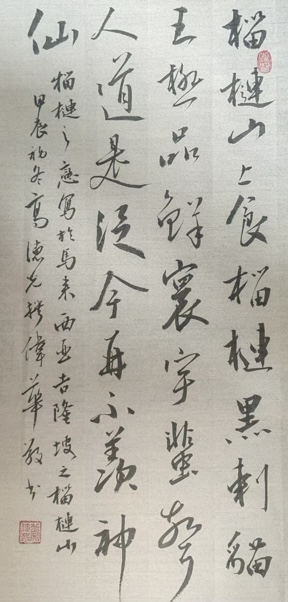 榴槤山上食榴槤黑刺貓
王極品鮮寰宇蜚聲
人道是從今再不羨神
仙
榴槤之戀寫於馬來西亞吉隆坡之榴槤山
甲辰初冬高德撰偉華敬书